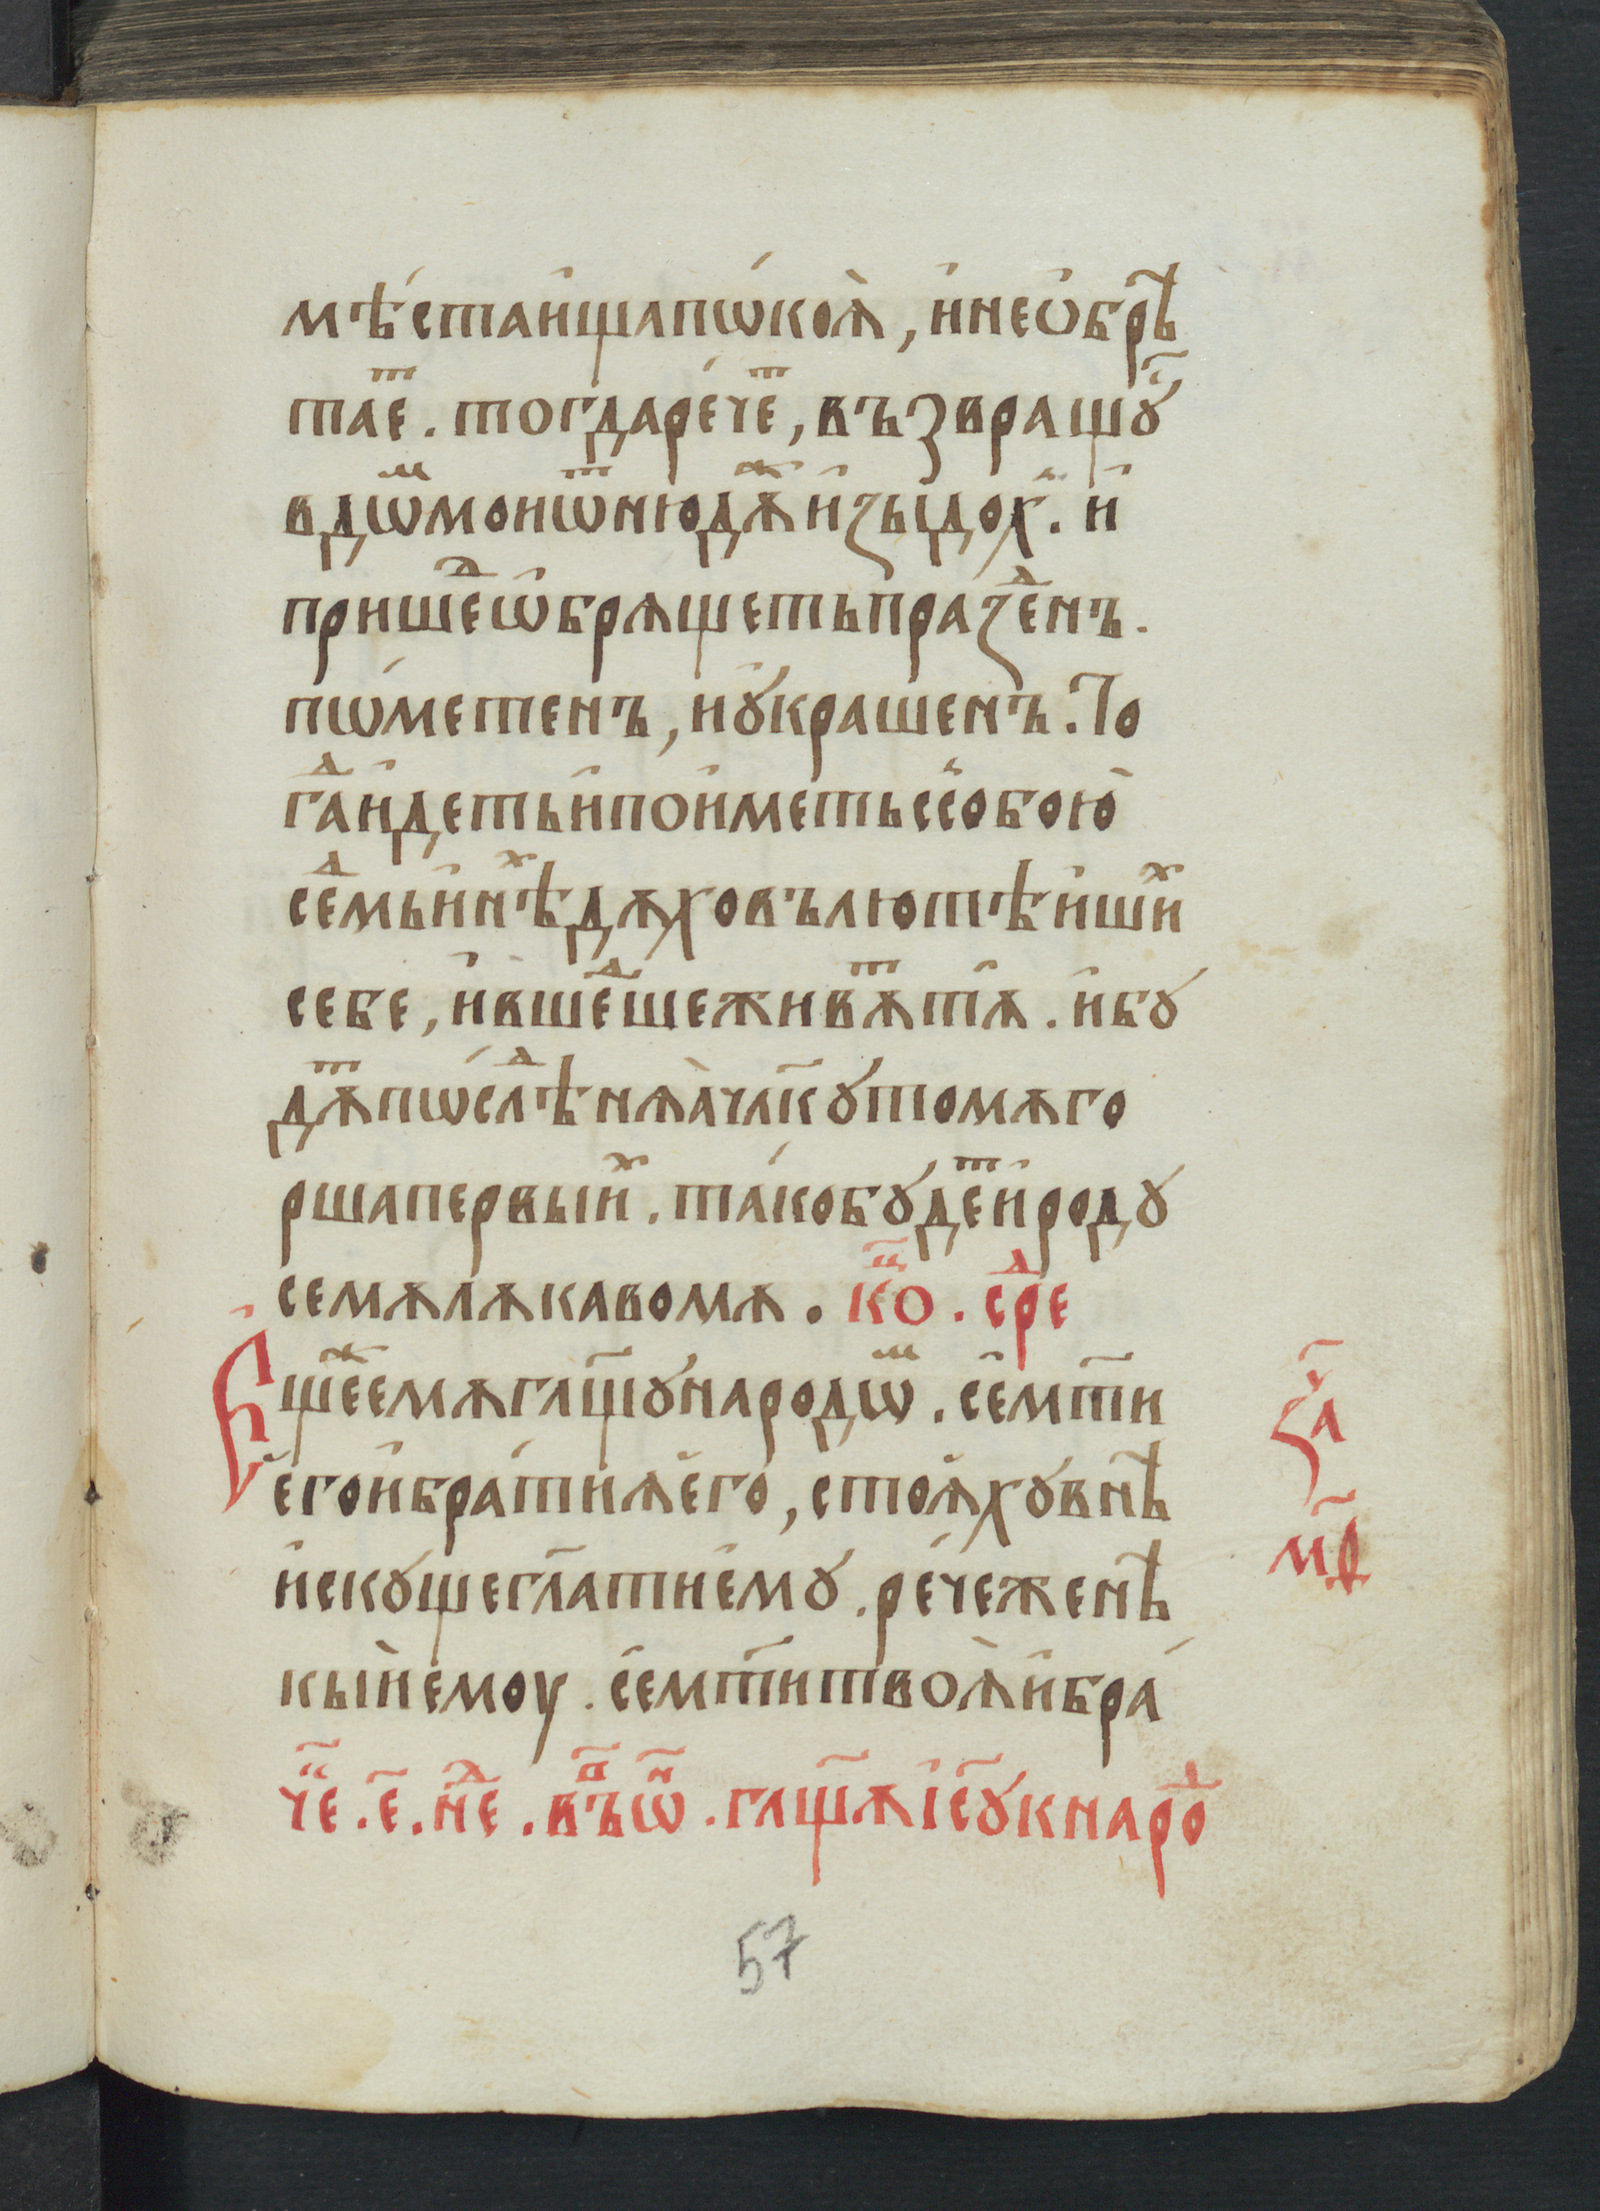 мѣста ища пѡкоѧ, и не ѻбрѣ
таеⷮ. тогда речеⷮ, възвращꙋ҃
в дѡⷨ мои ѿнюдꙋⷤ изыдохⷽ. и
пришеⷣ ѡбрѧщеть праꙁеⷣнъ.
пѡметенъ, и ꙋкрашенъ. То
гаⷣ идеть и поиметь с собою
сеⷣмь инѣⷯ дꙋховъ лютѣишиⷯ
себе, и вшеⷣше живѧⷮ тꙋ. и бꙋ
дѧⷮ пѡслѣⷣнѧа чл҃кꙋ томꙋ го
рша первыиⷯ. тако бꙋдеⷮ и родꙋ
семꙋ лꙋкавомꙋ. коⷰ҇. среⷣ
Е
щеⷤ емꙋ гл҃щꙋ народѡⷨ. се м҃ти
его и братиѧ его, стоѧхꙋ внѣ
искꙋще гл҃ати емꙋ. рече же нѣ
кыи емоу. се м҃ти твоѧ и бра
чеⷭ҇. е҃. неⷣ. въⷫ҇ ѡⷩ҇. гл҃щꙋ і҃сꙋ к нароⷣ
за҃ⷱ
м҃ѳ
57